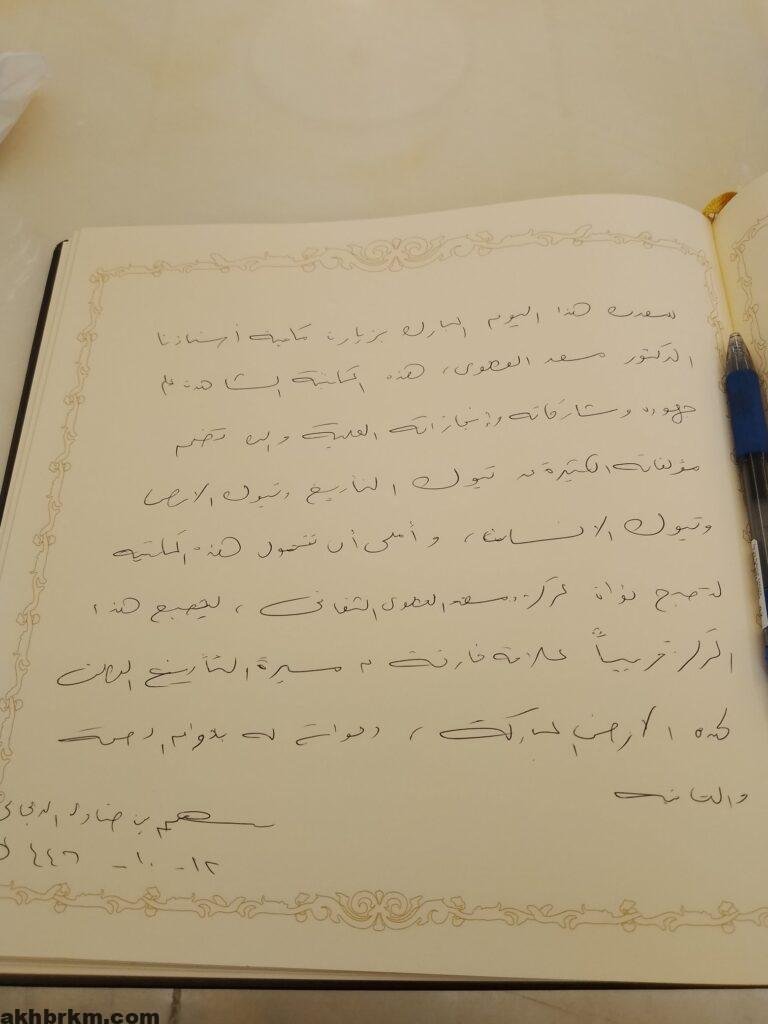 سعدت هذا اليوم المبارك بزيارة مكتبة أستاذنا
الدكتور مسعد العطوي، هذه المكتبة الشاهدة على
جهوده ومشاركاته وإنجازاته العلمية والتي تضم
مؤلفاته الكثيرة عن تبوك التأريخ وتبوك الأرض
وتبوك الإنسان، وأملي أن تتحول هذه المكتبة
لتصبح نواة لمركز د. مسعد العطوي الثقافي، ليصبح هذا
المركز قريباً علامة فارقة في مسيرة التأريخ
لهذه الأرض المباركة، دعواتي له بدوام الصحة
والعافية
بن ضاوي
١٢ - ١٠ - ١٤٤٦
akhbrkm.com